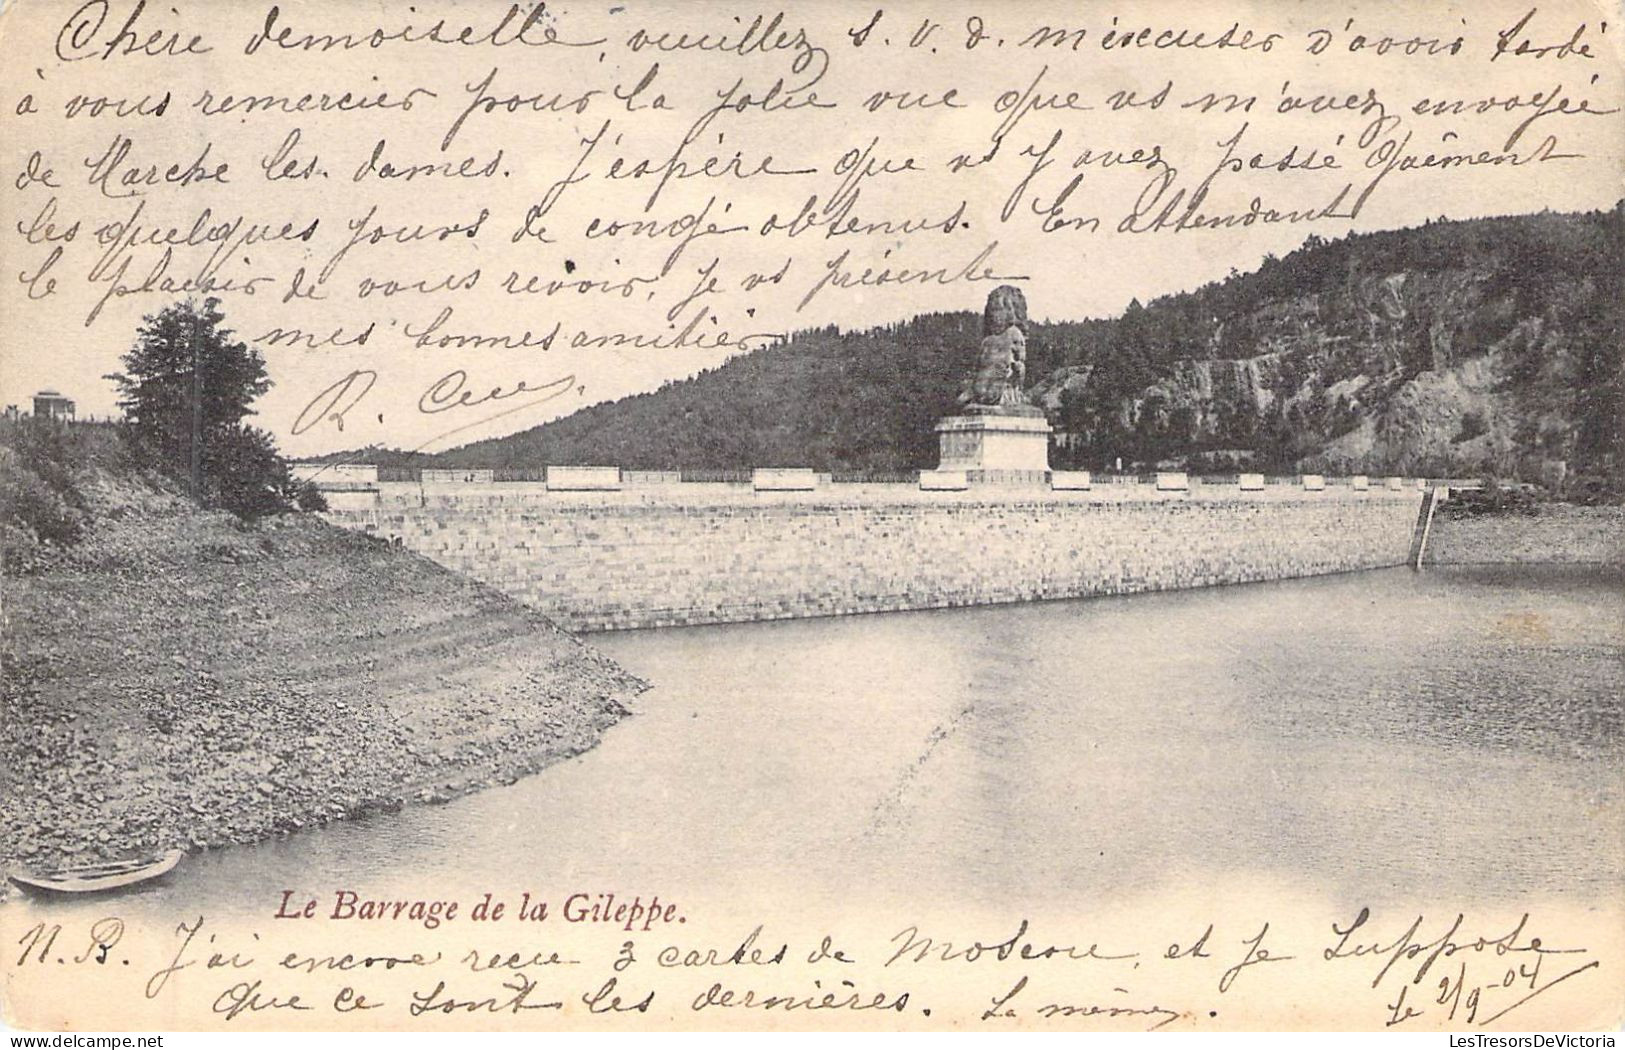 Chère demoiselle, veuillez s. v. d. m'excuser d'avoir tardé
à vous remercier pour la jolie vue que vs m'avez envoyée
de Marche les dames. J'espère que vs y avez passé gaîment
les quelques jours de congé obtenus. En attendant
le plaisir de vous revoir, je vs présente
mes bonnes amitiés
R.
Le Barrage de la Gileppe.
N.B. J'ai encore reçu 3 cartes de Moscou, et je suppose
que ce sont les dernières. La même.
le 2/9-04
LesTresorsDeVictoria.com
LesTresorsDeVictoria